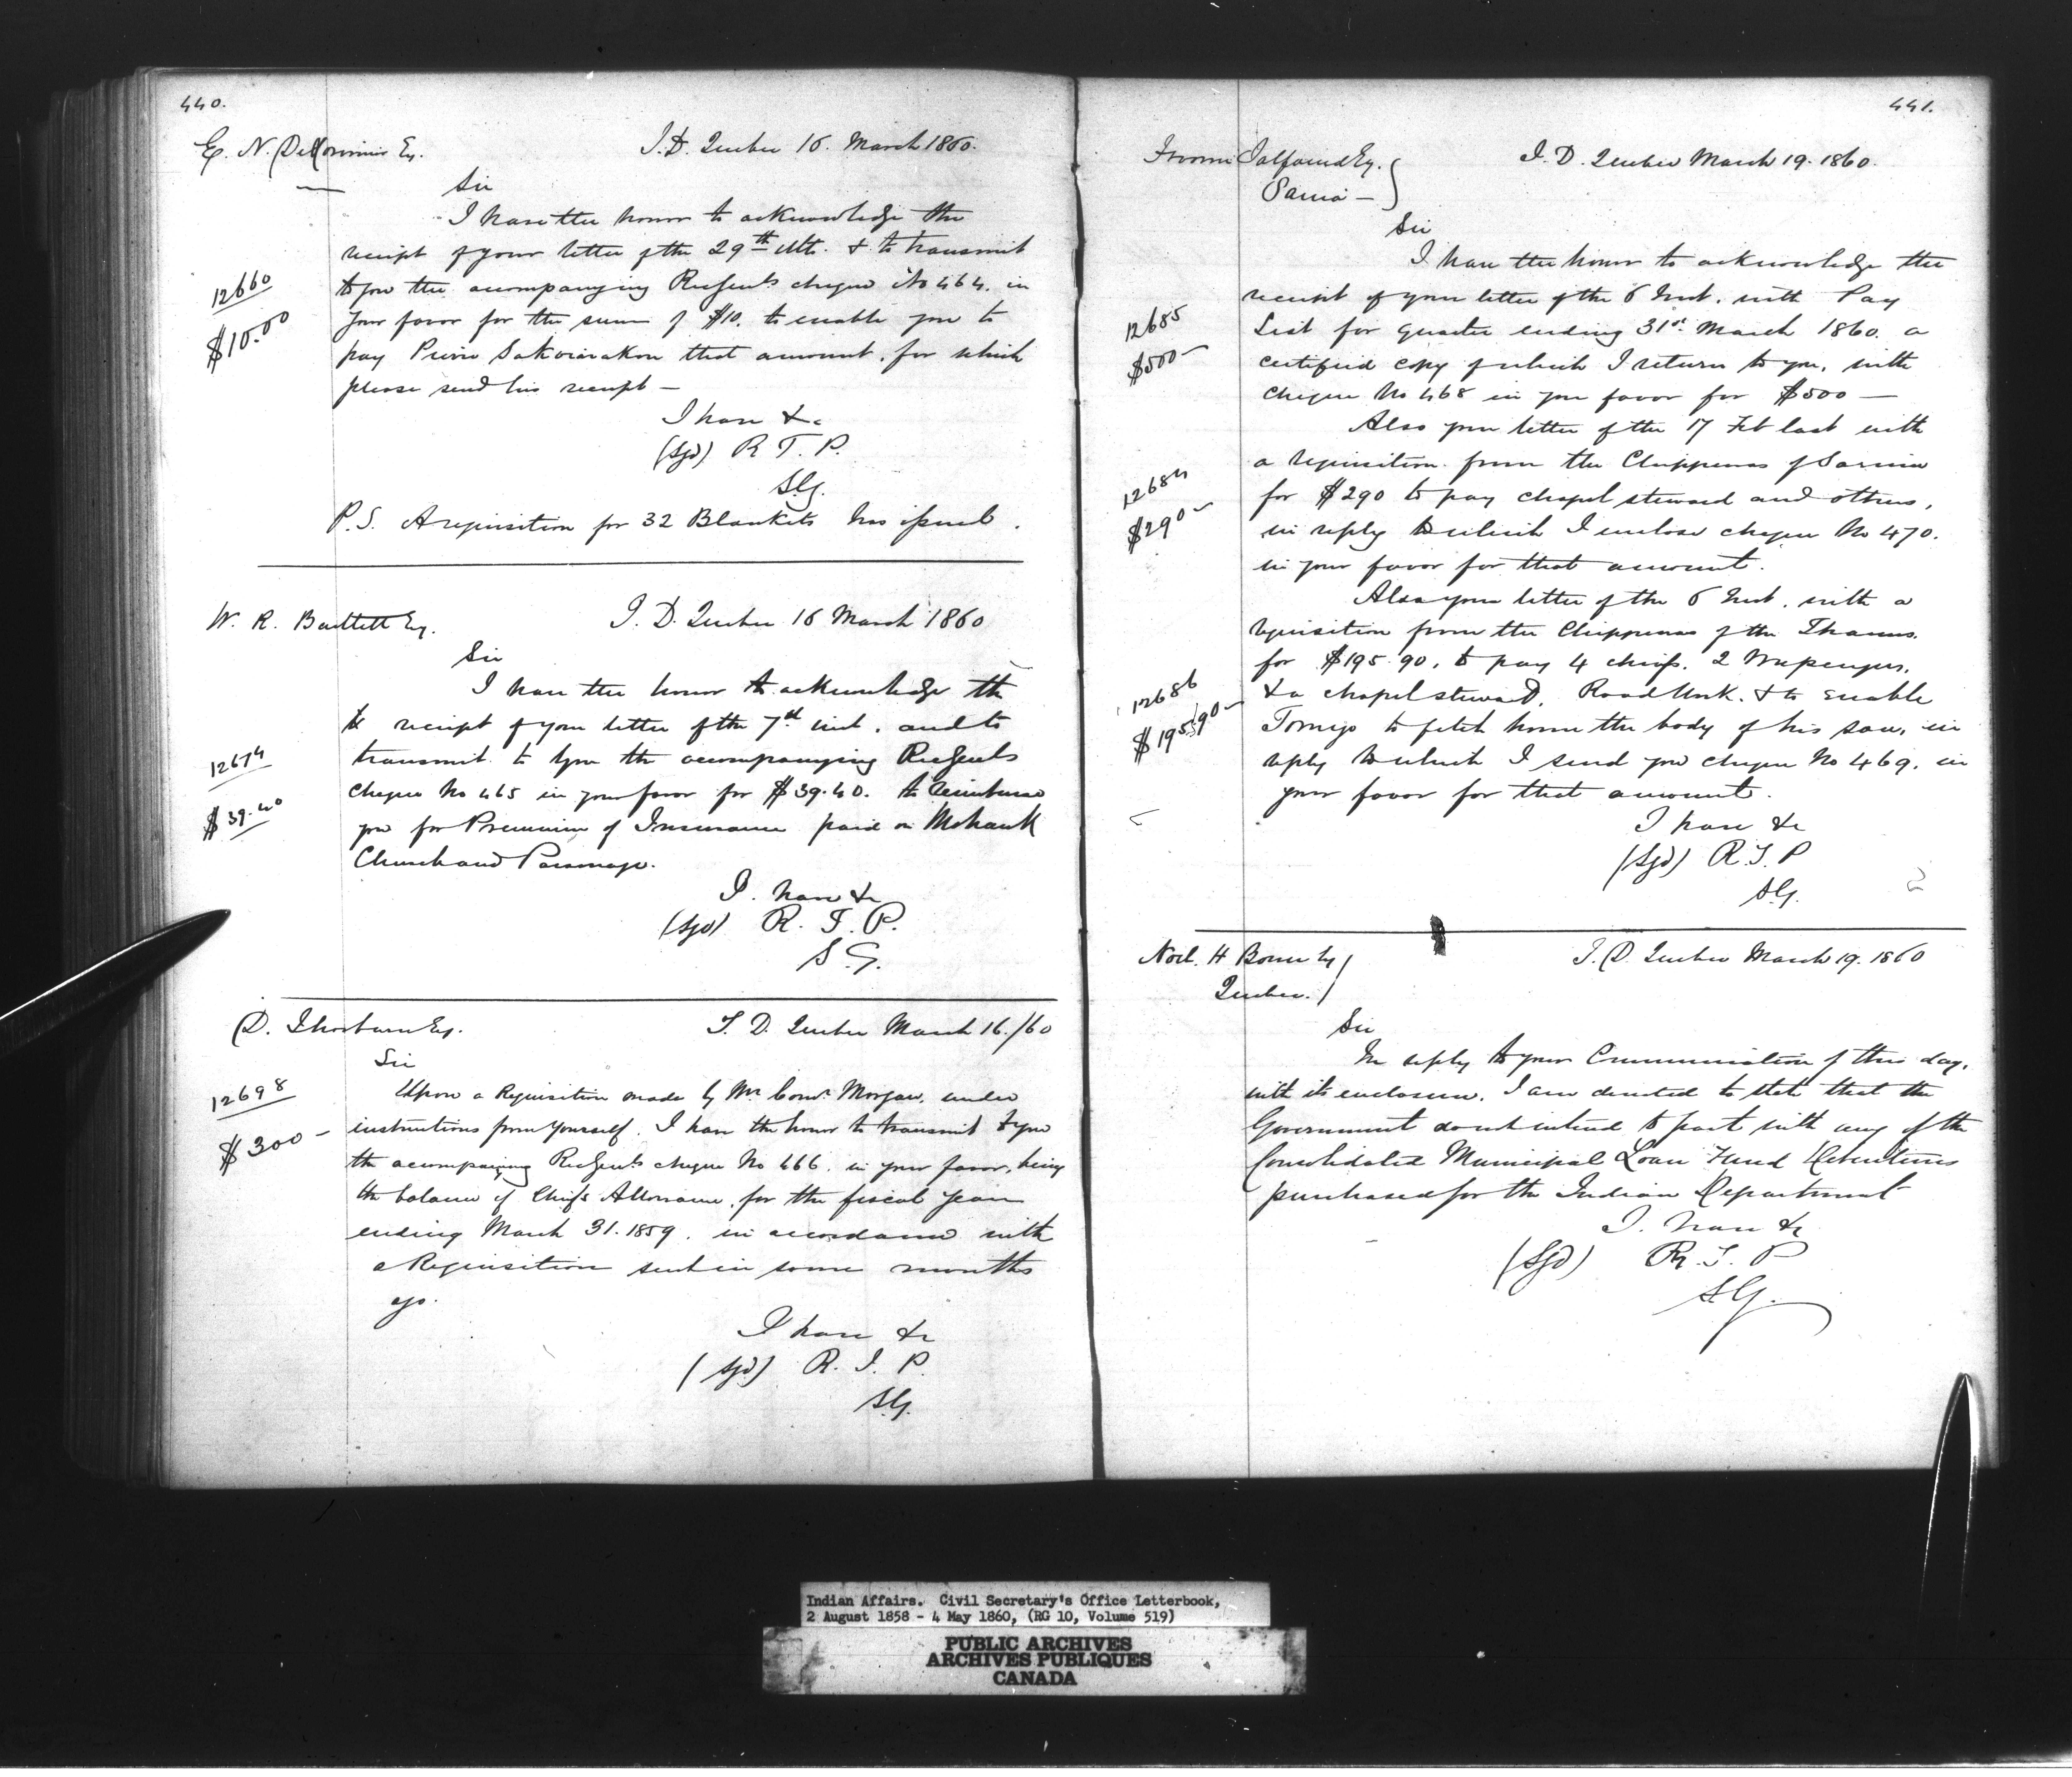 440.
E. N. DeLorimier Esq.
I.D. Quebec 16. March 1860.
Sir
I have the honor to acknowledge the
receipt of your letter of the 29th Ult. & to transmit
12660
to you the accompanying Recg Genls cheque No 464. in
$10.00
your favor for the sum of $10. to enable you to
pay Pierre that amount, for which
please send his receipt —
I have &c
(Sgd) R T. P.
S.G.
P.S. A requisition for 32 Blankets has issued.
W. R. Bartlett Esq.
I. D. Quebec 16 March 1860
Sir
I have the honor to acknowledge the
receipt of your letter of the 7th inst. and to
12674
transmit to you the accompanying Rec Genls
$39.40
cheque No 465 in your favor for $39.40. to reimburse
you for Premium of Insurance paid on Mohawk
Church and Parsonage.
I. have &c
(Sgd) R. T. P.
S.G.
D. Thorburn Esq.
I. D. Quebec March 16./60
Sir
12698
Upon a Requisition made by Mr Comr Morgan, under
$300 —
instructions from yourself. I have the honor to transmit to you
the accompanying Rec Genls cheque No 466. in your favor, being
the balance of Chiefs Allowance, for the fiscal year
ending March 31. 1859. in accordance with
a Requisition sent in some months
ago.
I have &c
(Sgd) R. T. P.
S.G.
441.
Froome Talfourd Esq.
Sarnia —
I. D. Quebec March 19. 1860.
Sir
I have the honor to acknowledge the
receipt of your letter of the 6 Inst. with Pay
12685
List for quarter ending 31st March 1860. a
$500 —
certified copy of which I return to you, with
cheque No 468 in your favor for $500 —
Also your letter of the 17 Feb last with
12684
a requisition from the Chippewas of Sarnia
$290 —
for $290 to pay chapel steward and others,
in reply to which I enclose cheque No 470.
in your favor for that amount.
Also your letter of the 6 Inst. with a
requisition from the Chippewas of the Thames
for $195.90, to pay 4 chiefs. 2
12686
& a chapel steward, Road Work. & to enable
$195.90 —
Tomigo to fetch home the body of his son, in
reply to which I send you cheque No 469. in
your favor for that amount.
I have &c
(Sgd) R. T. P
S.G.
Noel. H Bowen Esq
Quebec.
I. D. Quebec March 19. 1860
Sir
In reply to your Communication of this day,
with its enclosure. I am directed to state that the
Government do not intend to part with any of the
Consolidated Municipal Loan Fund Debentures
purchased for the Indian Department
I. have &c
(Sgd) R. T. P
S.G.
Indian Affairs. Civil Secretary's Office Letterbook,
2 August 1858 - 4 May 1860, (RG 10, Volume 519)
PUBLIC ARCHIVES
ARCHIVES PUBLIQUES
CANADA